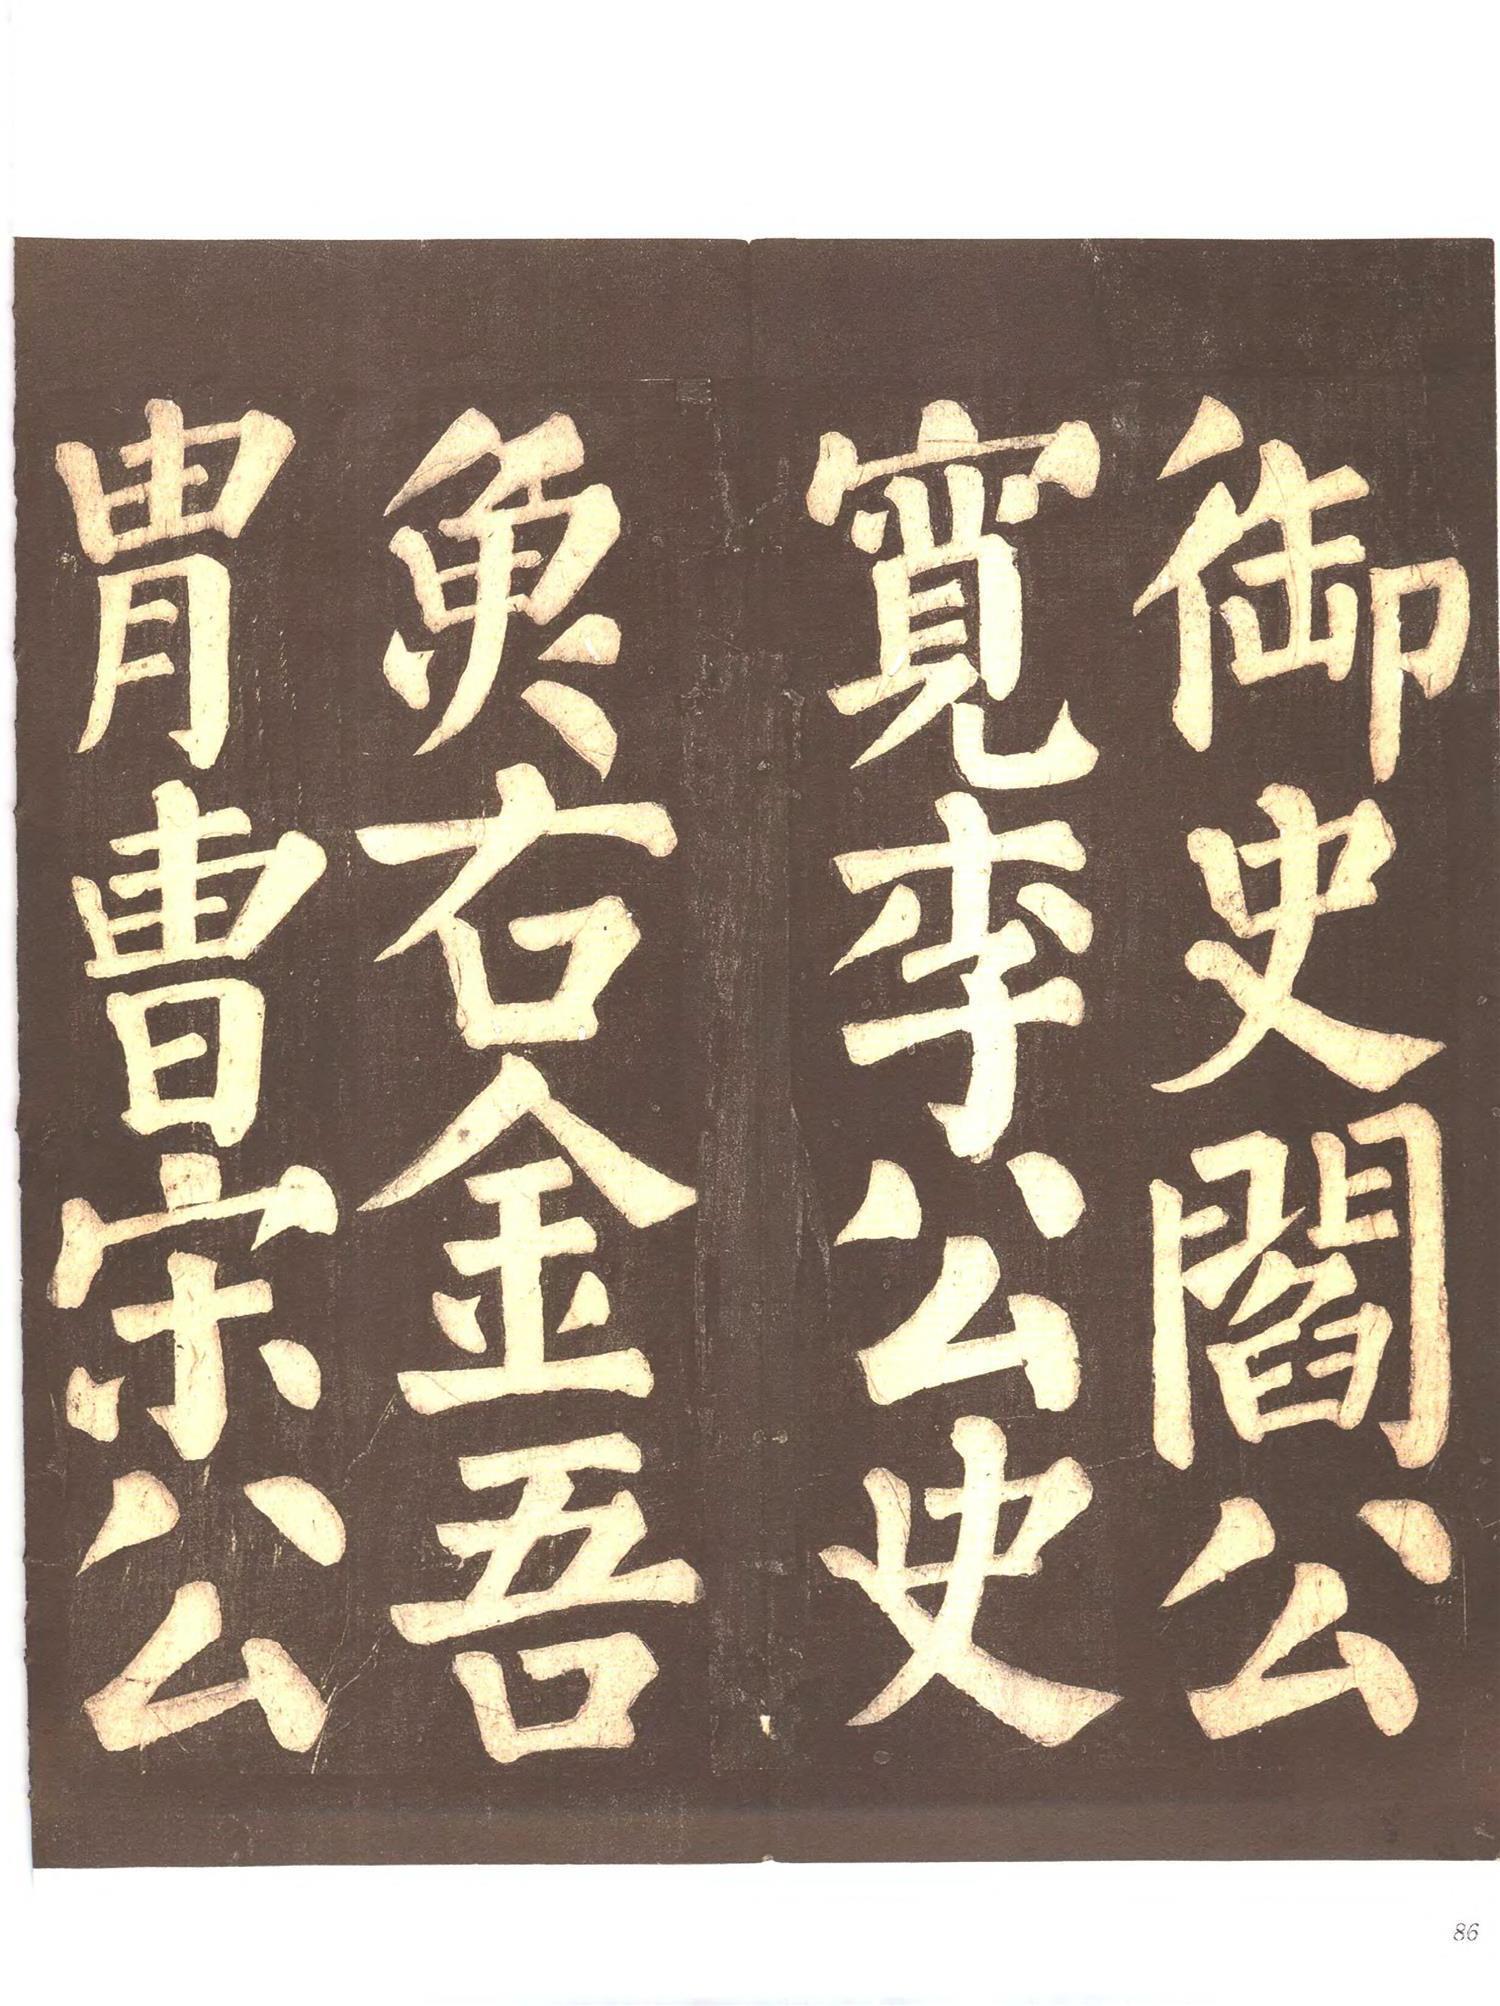 御史閻公
寬李公史
魚右金吾
胄曹宋公
86